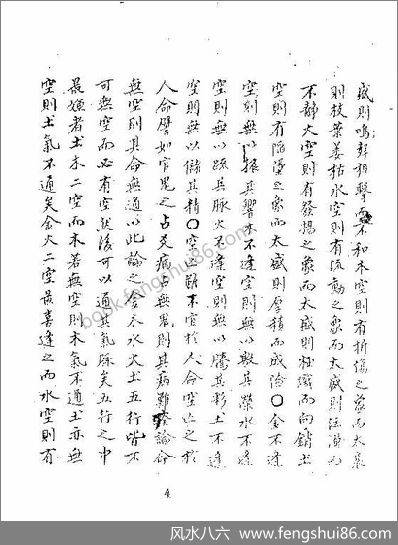 盛則鳴彭相擊而不和木空則有折傷之象而太衰
則枝葉姜枯水空則有流動之象而太盛則泛濫而
不靜火空則有發揚之象而太盛則而向銷土
空則有陷之象而太盛則厚積而成〇金不逢
空則無以振其響木不逢空則無以敷其榮水不逢
空則無以疏其脉火不逢空則無以騰其土不逢
空則無以儲其精〇空不宜於人命空亡之於
人命譬如官鬼之占爻病占無鬼則其病難論命
無空則其命無通以此論之金木水火土五行皆不
可無空而必有空然後可以通其氣脉矣五行之中
最嫌者土木二空而木若無空則木氣不通土亦無
空則土氣不通矣金火二空最喜逢之而水空則有
4
book.fengshui86.com
风水八六 www.fengshui86.com